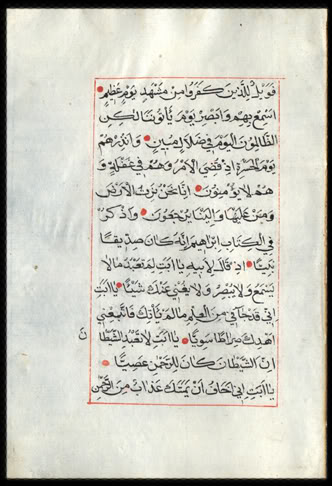 فويل للذين كفروا من مشهد يوم عظيم
اسمع بهم وابصر يوم يأتوننا لكن
الظالمون اليوم في ضلال مبين وانذرهم
يوم الحسرة اذ قضي الامر وهم في غفلة و
هم لا يؤمنون انا نحن نرث الارض
ومن عليها والينا يرجعون واذكر
في الكتاب ابراهيم انه كان صديقا
نبيا اذ قال لابيه يا ابت لم تعبد ما لا
يسمع ولا يبصر ولا يغني عنك شيئا يا ابت
اني قد جاءني من العلم ما لم يأتك فاتبعني
اهدك صراطا سويا يا ابت لا تعبد الشيطا
ن
ان الشيطان كان للرحمن عصيا
يا ابت اني اخاف ان يمسك عذاب من الرحمن